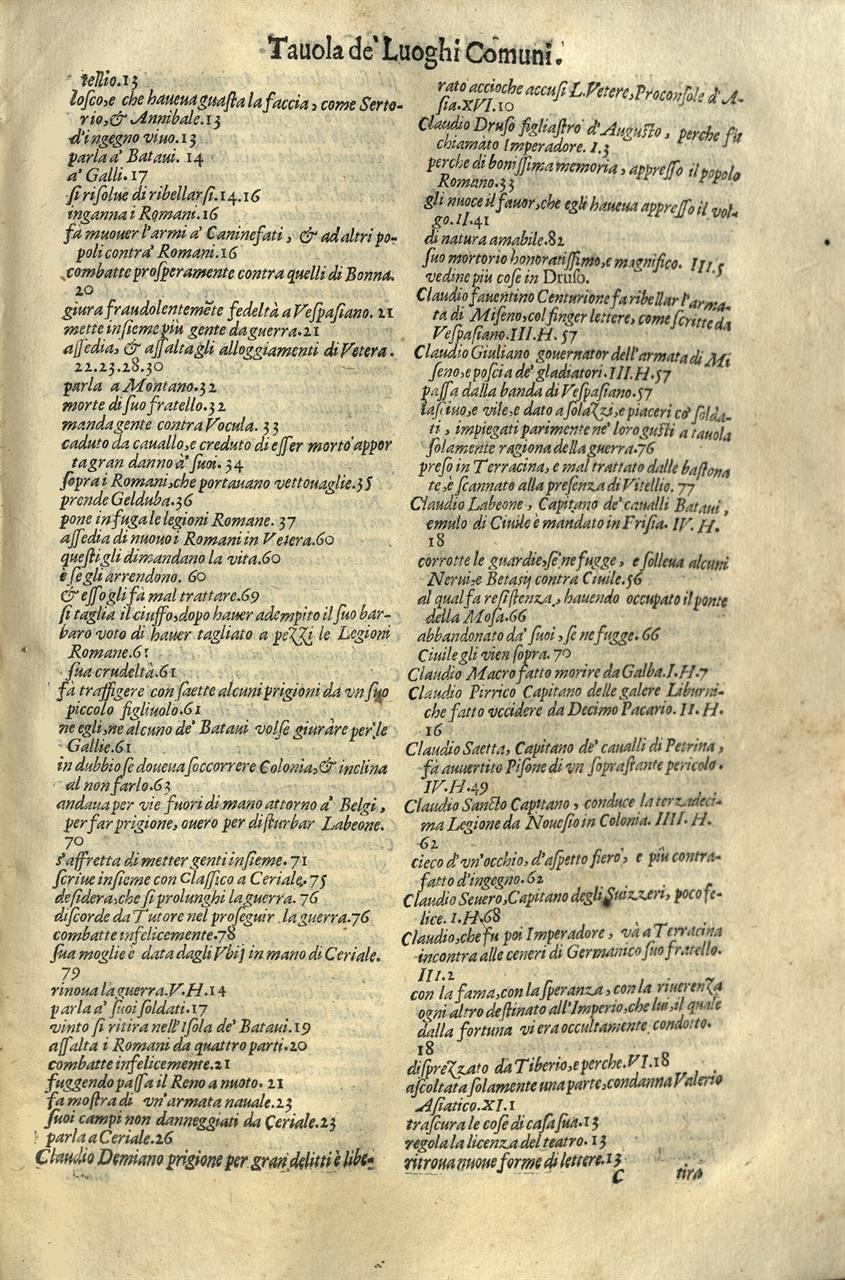 Tauola de' Luoghi Comuni.
tellio.13
losco, e che haueua guasta la faccia, come Serto-
rio, & Annibale.13
d'ingegno viuo.13
parla a' Bataui. 14
a' Galli.17
si risolue di ribellarsi.14.16
inganna i Romani.16
fa muouer l'armi a' Caninefati, & ad altri po-
poli contra' Romani.16
combatte prosperamente contra quelli di Bonna.
20
giura fraudolentemēte fedeltà a Vespasiano. 21
mette insieme più gente da guerra.21
assedia, & assalta gli alloggiamenti di Vetera.
22.23.28.30
parla a Montano.32
morte di suo fratello.32
manda gente contra Vocula. 33
caduto da cauallo, e creduto di esser morto appor
ta gran danno a' suoi. 34
sopra i Romani, che portauano vettouaglie.35
prende Gelduba.36
pone in fuga le legioni Romane. 37
assedia di nuouo i Romani in Vetera.60
questi gli dimandano la vita.60
e se gli arrendono. 60
& esso gli fà mal trattare.69
si taglia il ciuffo, dopo hauer adempito il suo bar-
baro voto di hauer tagliato a pezzi le Legioni
Romane.61
sua crudeltà.61
fà traffigere con saette alcuni prigioni da vn suo
piccolo figliuolo.61
ne egli, ne alcuno de' Bataui volse giurare per le
Gallie.61
in dubbio se doueua soccorrere Colonia, & inclina
al non farlo.63
andaua per vie fuori di mano attorno a' Belgi,
per far prigione, ouero per disturbar Labeone.
70
s'affretta di metter genti insieme. 71
scriue insieme con Classico a Ceriale.75
desidera, che si prolunghi la guerra. 76
discorde da Tutore nel proseguir la guerra.76
combatte infelicemente.78
sua moglie è data dagli Vbij in mano di Ceriale.
79
rinoua la guerra.V.H.14
parla a' suoi soldati.17
vinto si ritira nell'Isola de' Bataui.19
assalta i Romani da quattro parti.20
combatte infelicemente.21
fuggendo passa il Reno a nuoto. 21
fa mostra di vn'armata nauale.23
suoi campi non danneggiati da Ceriale.23
parla a Ceriale.26
Claudio Demiano prigione per gran delitti è libe-
rato accioche accusi L.Vetere, Proconsole d'A-
sia.XVI.10
Claudio Druso figliastro d'Augusto, perche fu
chiamato Imperadore. I.3
perche di bonissima memoria, appresso il popolo
Romano.33
gli nuoce il fauor, che egli haueua appresso il vol-
go.II.41
di natura amabile.82
suo mortorio honoratissimo, e magnifico. III.5
vedine più cose in Druso.
Claudio fauentino Centurione fa ribellar l'arma-
ta di Miseno, col finger lettere, come scritte da
Vespasiano.III.H. 57
Claudio Giuliano gouernator dell'armata di Mi
seno, e poscia de' gladiatori.III.H.57
passa dalla banda di Vespasiano.57
lasciuo, e vile, e dato a solazzi, e piaceri co' solda-
ti, impiegati parimente ne' loro gusti a tauola
solamente ragiona della guerra.76
preso in Terracina, e mal trattato dalle bastona
te, è scannato alla presenza di Vitellio. 77
Claudio Labeone, Capitano de' caualli Bataui,
emulo di Ciuile è mandato in Frisia. IV. H.
18
corrotte le guardie, se ne fugge, e solleua alcuni
Neruij, e Betasij contra Ciuile.56
al qual fa resistenza, hauendo occupato il ponte
della Mosa.66
abbandonato da' suoi, se ne fugge. 66
Ciuile gli vien sopra. 70
Claudio Macro fatto morire da Galba.I.H.7
Claudio Pirrico Capitano delle galere Liburni-
che fatto vccidere da Decimo Pacario. II. H.
16
Claudio Saetta, Capitano de' caualli di Petrina,
fà auuertito Pisone di vn soprastante pericolo.
IV.H.49
Claudio Sancto Capitano, conduce la terzadeci-
ma Legione da Nouesio in Colonia. IIII. H.
62
cieco d'vn'occhio, d'aspetto fiero, e più contra-
fatto d'ingegno.62
Claudio Seuero, Capitano degli Suizzeri, poco fe-
lice. I.H.68
Claudio, che fu poi Imperadore, và a Terracina
incontra alle ceneri di Germanico suo fratello.
III.2
con la fama, con la speranza, con la riuerenza
ogni altro destinato all'Imperio, che lui, il quale
dalla fortuna vi era occultamente condotto.
18
disprezzato da Tiberio, e perche.VI.18
ascoltata solamente una parte, condanna Valerio
Asiatico.XI.1
trascura le cose di casa sua.13
regola la licenza del teatro. 13
ritroua nuoue forme di lettere.13
C tira